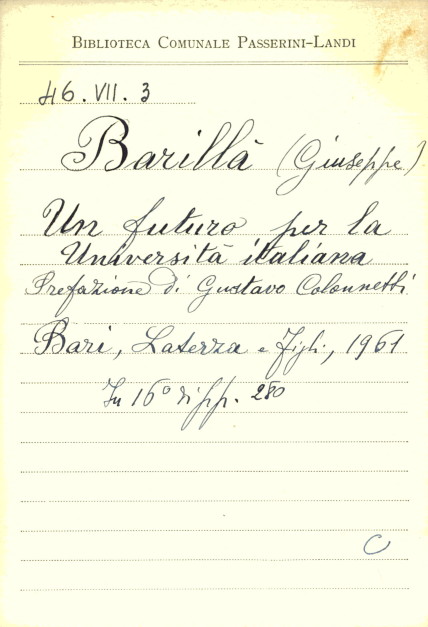 BIBLIOTECA COMUNALE PASSERINI-LANDI
46.VII.3
Barillà (Giuseppe)
Un futuro per la
Università italiana
Prefazione di Gustavo Colonnetti
Bari, Laterza e Figli, 1961
In 16° di pp. 280
C